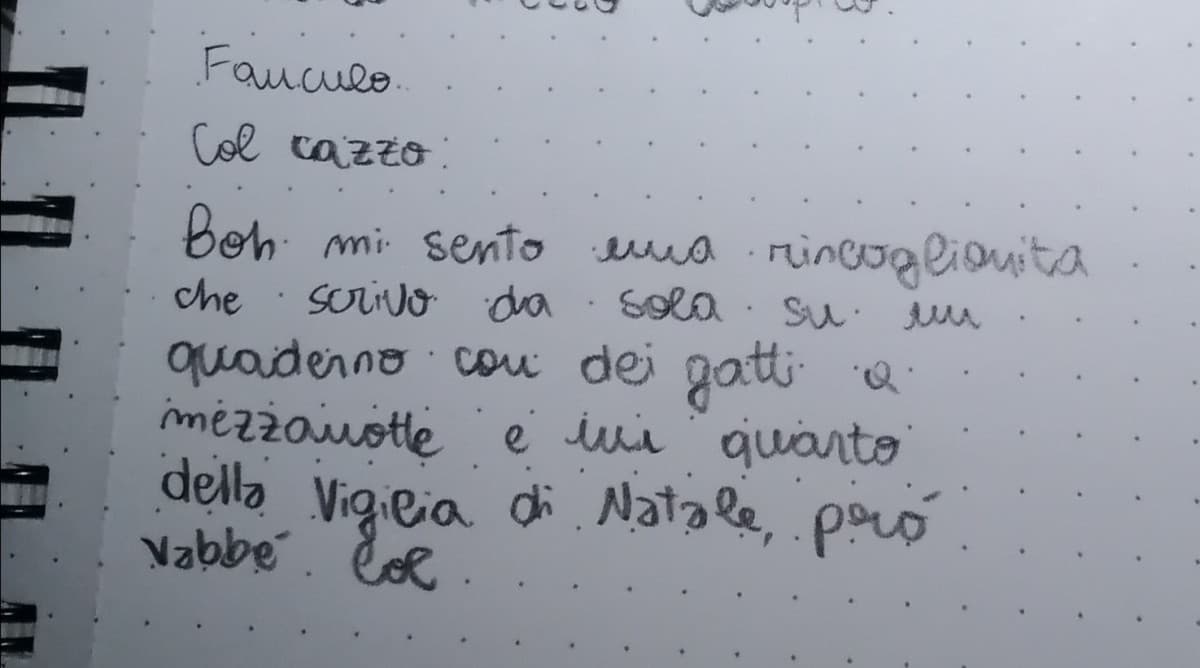 Fanculo.
Col cazzo.
Boh mi sento una rincoglionita
che scrivo da sola su un
quaderno con dei gatti a
mezzanotte e un quarto
della Vigilia di Natale, però
vabbè. Lol.